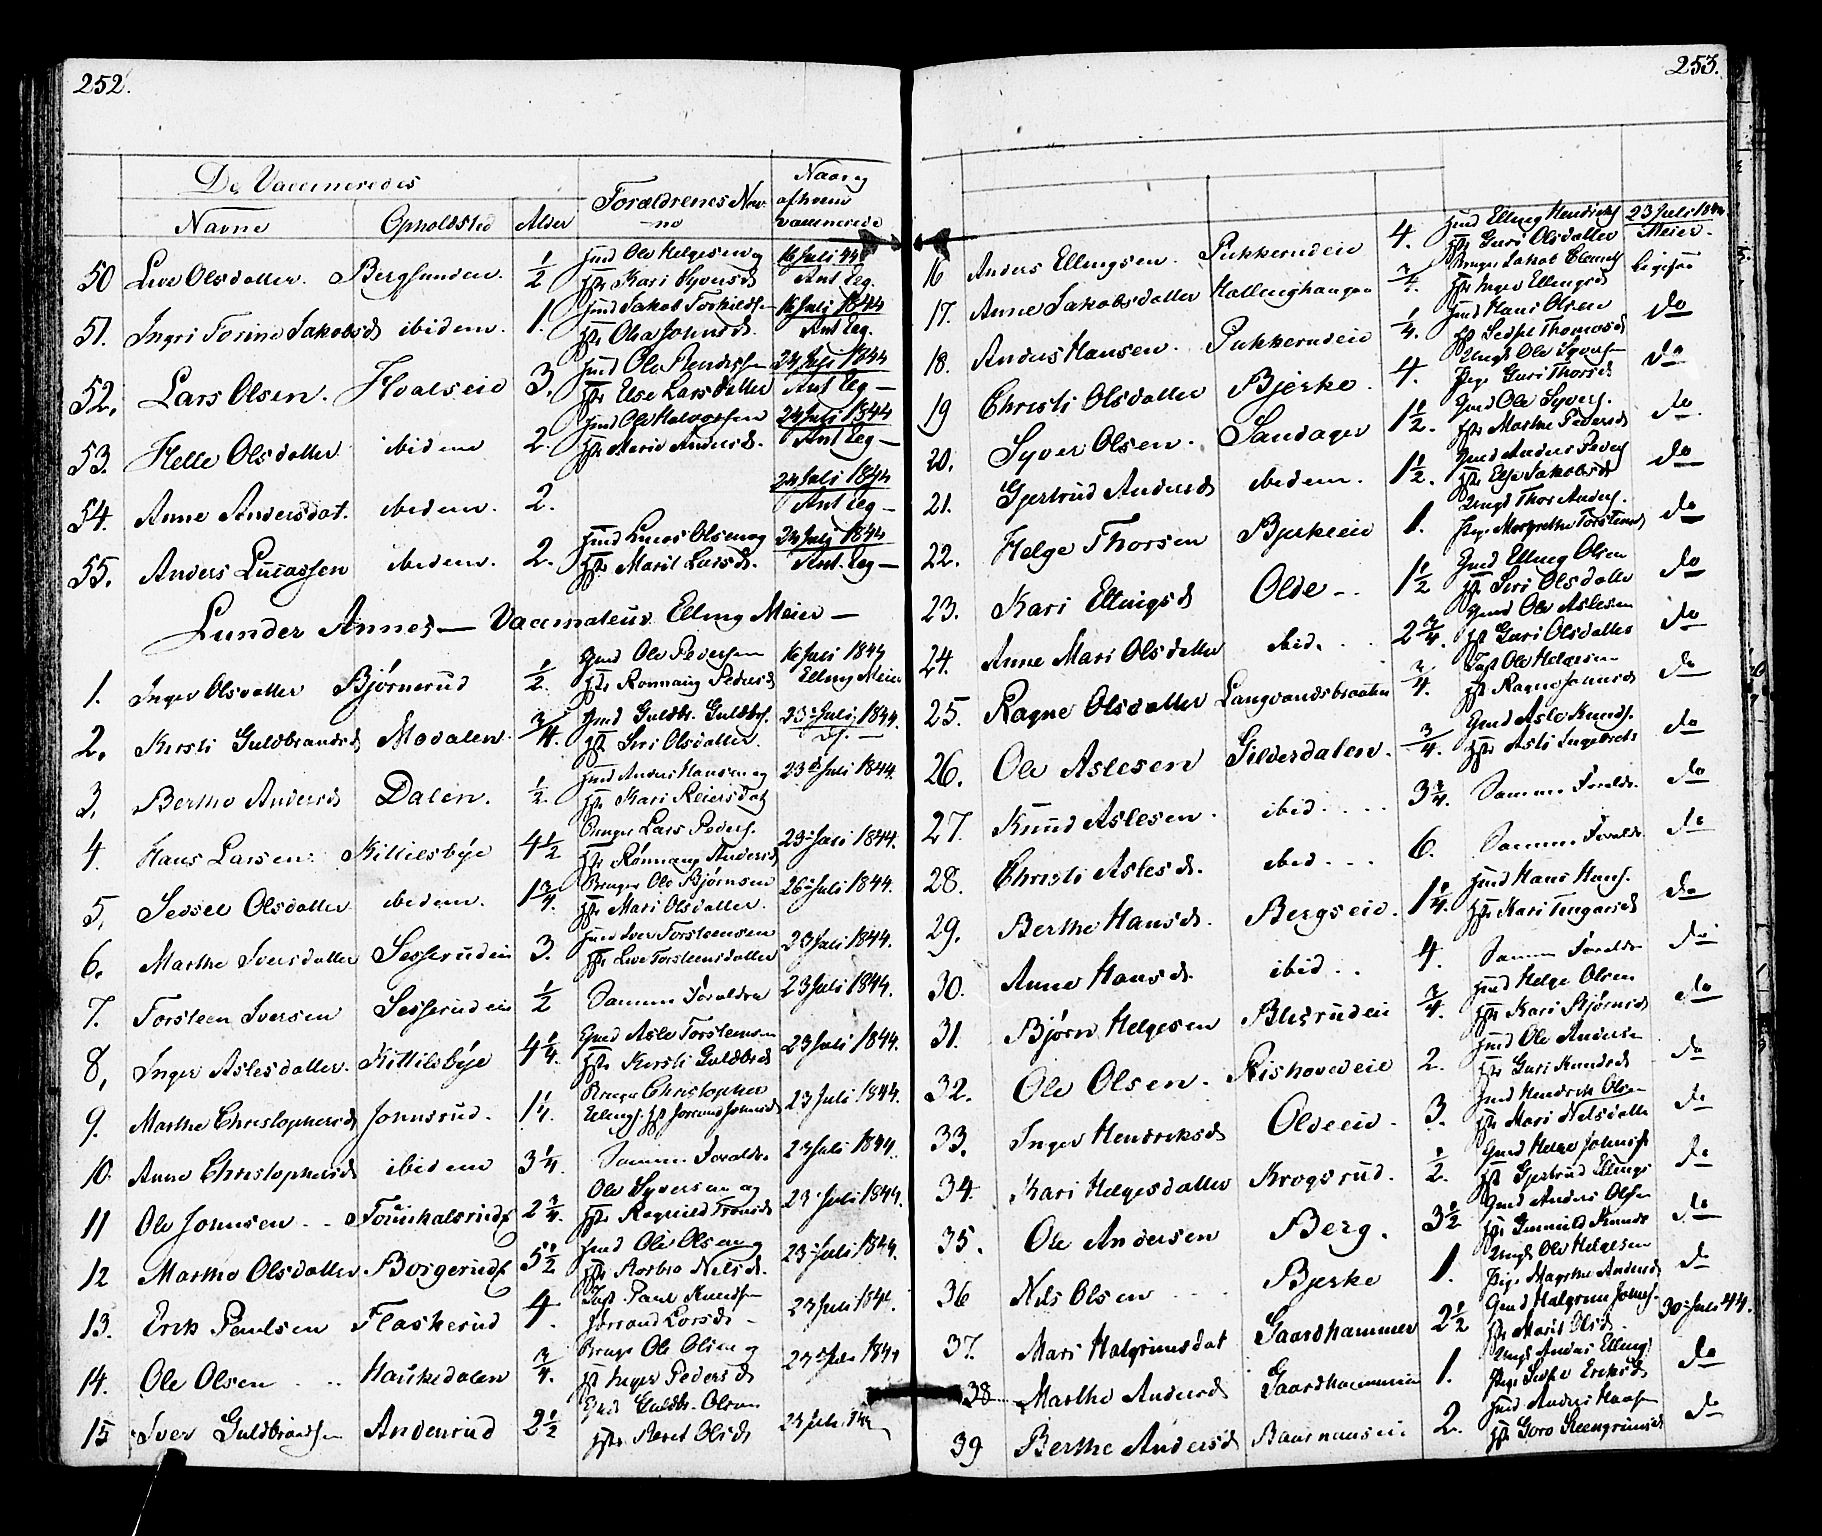 252.
De Vaccineredes
Navne Opholdsted Alder Forældrenes Nav-ne Naar og af hvem vaccinerede
50 Live Olsdatter. Bergsunden. 1/2 Hmd Ole Helgesen og Hst Kari Syversd 16 Juli 44 Ant Eeg.
51. Ingri Torine Jakobsd ibidem. 1. Hmd Jakob Torkilds- Hst Olea Johnsd. 16 Juli 1844 Ant Eeg.
52. Lars Olsen. Hvalseie 3. Hmd Ole Hst Else Larsdatter 24 Juli 1844 Ant Eeg —
53. Helle Olsdatter ibidem 2. Hmd Ole Halvorsen Hst Marie Andersd. 24 Juli 1844 Ant Eeg —
54. Anne Andersdat. ibidem. 2. 24 Juli 1844 Ant Eeg —
55. Anders Lucassen ibidem. 2. Hmd Lucas Olsen og Hst Marit Larsd. 24 Juli 1844 Ant. Eeg —
Lunder Annex — Vaccinateur Elling Meier —
1. Inger Olsdatter Bjørnerud 1/2. Gmd Ole Pedersen Hst Rønnaug Pedersd 16 Juli 1844 Elling Meier
2. Kirsti Guldbrandsd Modalen. 3/4. Gmd Guldbr. Guldbrs. Hst Siri Olsdatter. 23 Juli 1844.
3. Berthe Andersd Dalen. 1/2. Hmd Anders Hansen og Hst Kari Reiersdat 23 Juli 1844.
4. Hans Larsen. Kittilsbye 4 1/2 Bruger Lars Peders. Hst Rønnaug Andersd 23 Juli 1844.
5. Sessel Olsdatter ibidem. 1 3/4. Bruger Ole Bjørnsen Hst Mari Olsdatter. 26 Juli 1844.
6. Marthe Iversdatter Sesserudeie 3. Hmd Iver Torsteensen Hst Live Torsteensdatter 23 Juli 1844.
7. Torsteen Iversen Sesserudeie 1/2 Samme Forældre 23 Juli 1844.
8. Inger Aslesdatter. Kittilsbye 4 1/4. Gmd Asle Torsteensen Hst Kirsti Guldbrsd 23 Juli 1844.
9. Marthe Christophersd Johnsrud. 1 1/4. Bruger Christopher Ellings. Hst Jorand Johnsd 23 Juli 1844.
10. Anne Christophersd ibidem 3 1/4. Samme Forældre 23 Juli 1844.
11 Ole Johnsen 2 3/4. Ole Syversen og Hst Ragnild 23 Juli 1844.
12 Marthe Olsdatter. Borgerud 5 1/2 Hmd Ole Olsen og Hst Barbro Nilsd. 23 Juli 1844.
13. Erik Paulsen Flaskerud 4. Inst Paul Knuds- Jorrand Larsd — 23 Juli 1844.
14. Ole Olsen Haukedalen 3/4. Bruger Ole Olsen og Hst Inger Pedersd 23 Juli 1844
15 Iver Guldbrands Anderud 2 1/2 Gmd Guldbr. Olsen Hst Aaret Olsd 23 Juli 1844
253.
16 Anders Ellingsen. Pukkerudeie 4. Hmd Elling Hendriks Hst Guri Olsdatter 23 Juli 1844 Meier.
17. Anne Jakobsdatter Hallinghaugen 3/4. Bruger Jakob Hst Inger Ellingsd ligesaa
18. Anders Hansen. Pukkerudeie 1/4. Hmd Hans Olsen Hst Sessel Thomasd do
19 Christi Olsdatter Bjerke 4. Ungk Ole Syvers- Pige Guri Thorsd do
20. Syver Olsen. Sandager 1 1/2. Gmd Ole Syvers. Hst Marthe Pedersd do
21. Gjertrud Andersd ibidem. 1 1/2. Gmd Anders Peders Hst Else Jakobsd do
22. Helge Thorsen Bjerkeeie 1. Ungk Thor Anders. Pige Margrethe Torsteensd do
23. Kari Ellingsd Olde 1 1/2 Gmd Elling Olsen Hst Siri Olsdatter do
24. Anne Mari Olsdatter ibid. 2 3/4. Gmd Ole Aslesen Hst Guri Olsdatter do
25. Ragne Olsdatter Langvandsbraaten 3/4. Inst Ole Helgesen Hst Ragne Johnsd do
26. Ole Aslesen Gilderdalen. 3/4. Gmd Asle Knuds. Hst Asli Ingebretsd do
27. Knud Aslesen. ibid. 3 3/4. Samme Forældr. do
28. Christi Aslesd. ibid. 6. Samme Forældr. do
29. Berthe Hansd. Bergseie. 1 1/4. Hmd Hans Hans. Hst Kari do
30. Anne Hansd. ibid. 4. Samme Forældr. do
31. Bjørn Helgesen Blesrudeie 3/4. Hmd Helge Olsen Hst Kari Bjørnsd do
32. Ole Olsen. Rishovedeie 2. Hmd Ole Anders Hst Guri Knudsd do
33. Inger Hendriksd Oldeeie. 3. Hmd Hendrik Olsen Hst Mari Nilsdatter do
34. Kari Helgesdatter Krogsrud. 1/2. Gmd Helge Johns Hst Gjertrud Ellings do
35. Ole Andersen Berg. 3 1/2 Gmd Anders Olsen Hst Gunnild Knuds do
36 Nils Olsen Bjerke 1. Ungk Ole Helgesen Pige Magrthe Andersd do
37. Mari Halgrimsdat Gaardhammer 2 1/2 Gmd Halgrim Johns. Hst Marit Olsd 30 Juli 44.
38 Marthe Andersd Gaardhammereie 1. Ungk Anders Ellings Pige Sidse Eriksd do
39 Berthe Andersd 2. Hmd Anders Hans Hst Goro Steengrimsd do